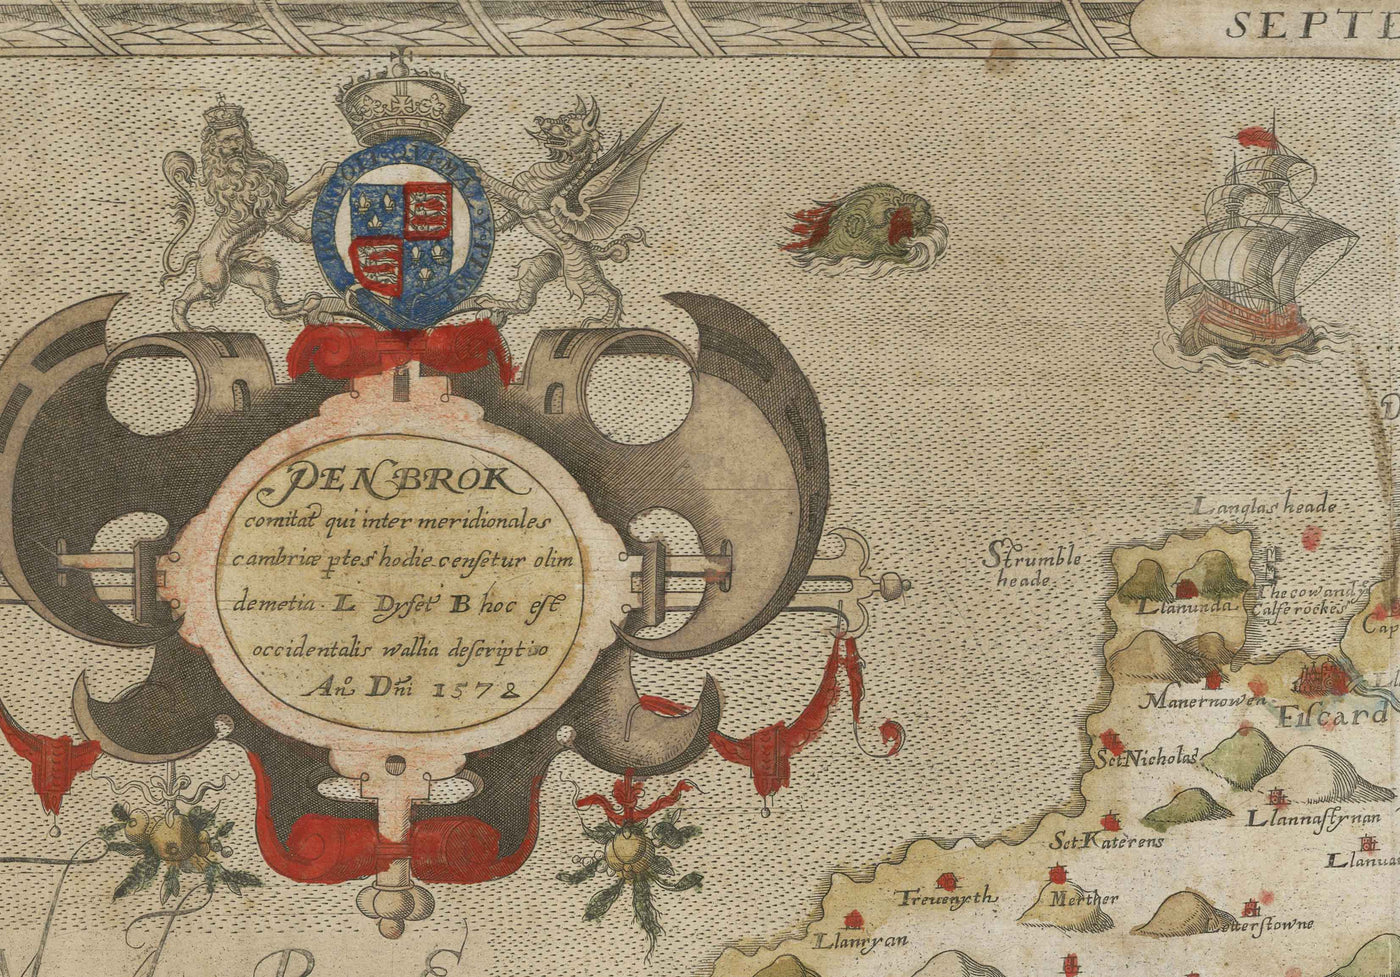 SEPTE
PENBROK
comitat qui inter meridionales
cambriæ ptes hodie censetur olim
demetia. L Dyfet B hoc est
occidentalis wallia descriptio
Ano Dni 1578
Langlas heade
Strumble
heade
The cow and
Calfe rockes
Llanunda
Manernowen
Fiscard
Sct Nicholas
Llannastynan
Sct Katerens
Llanua
Trevenyth
Merther
Lotterstowne
Llanryan